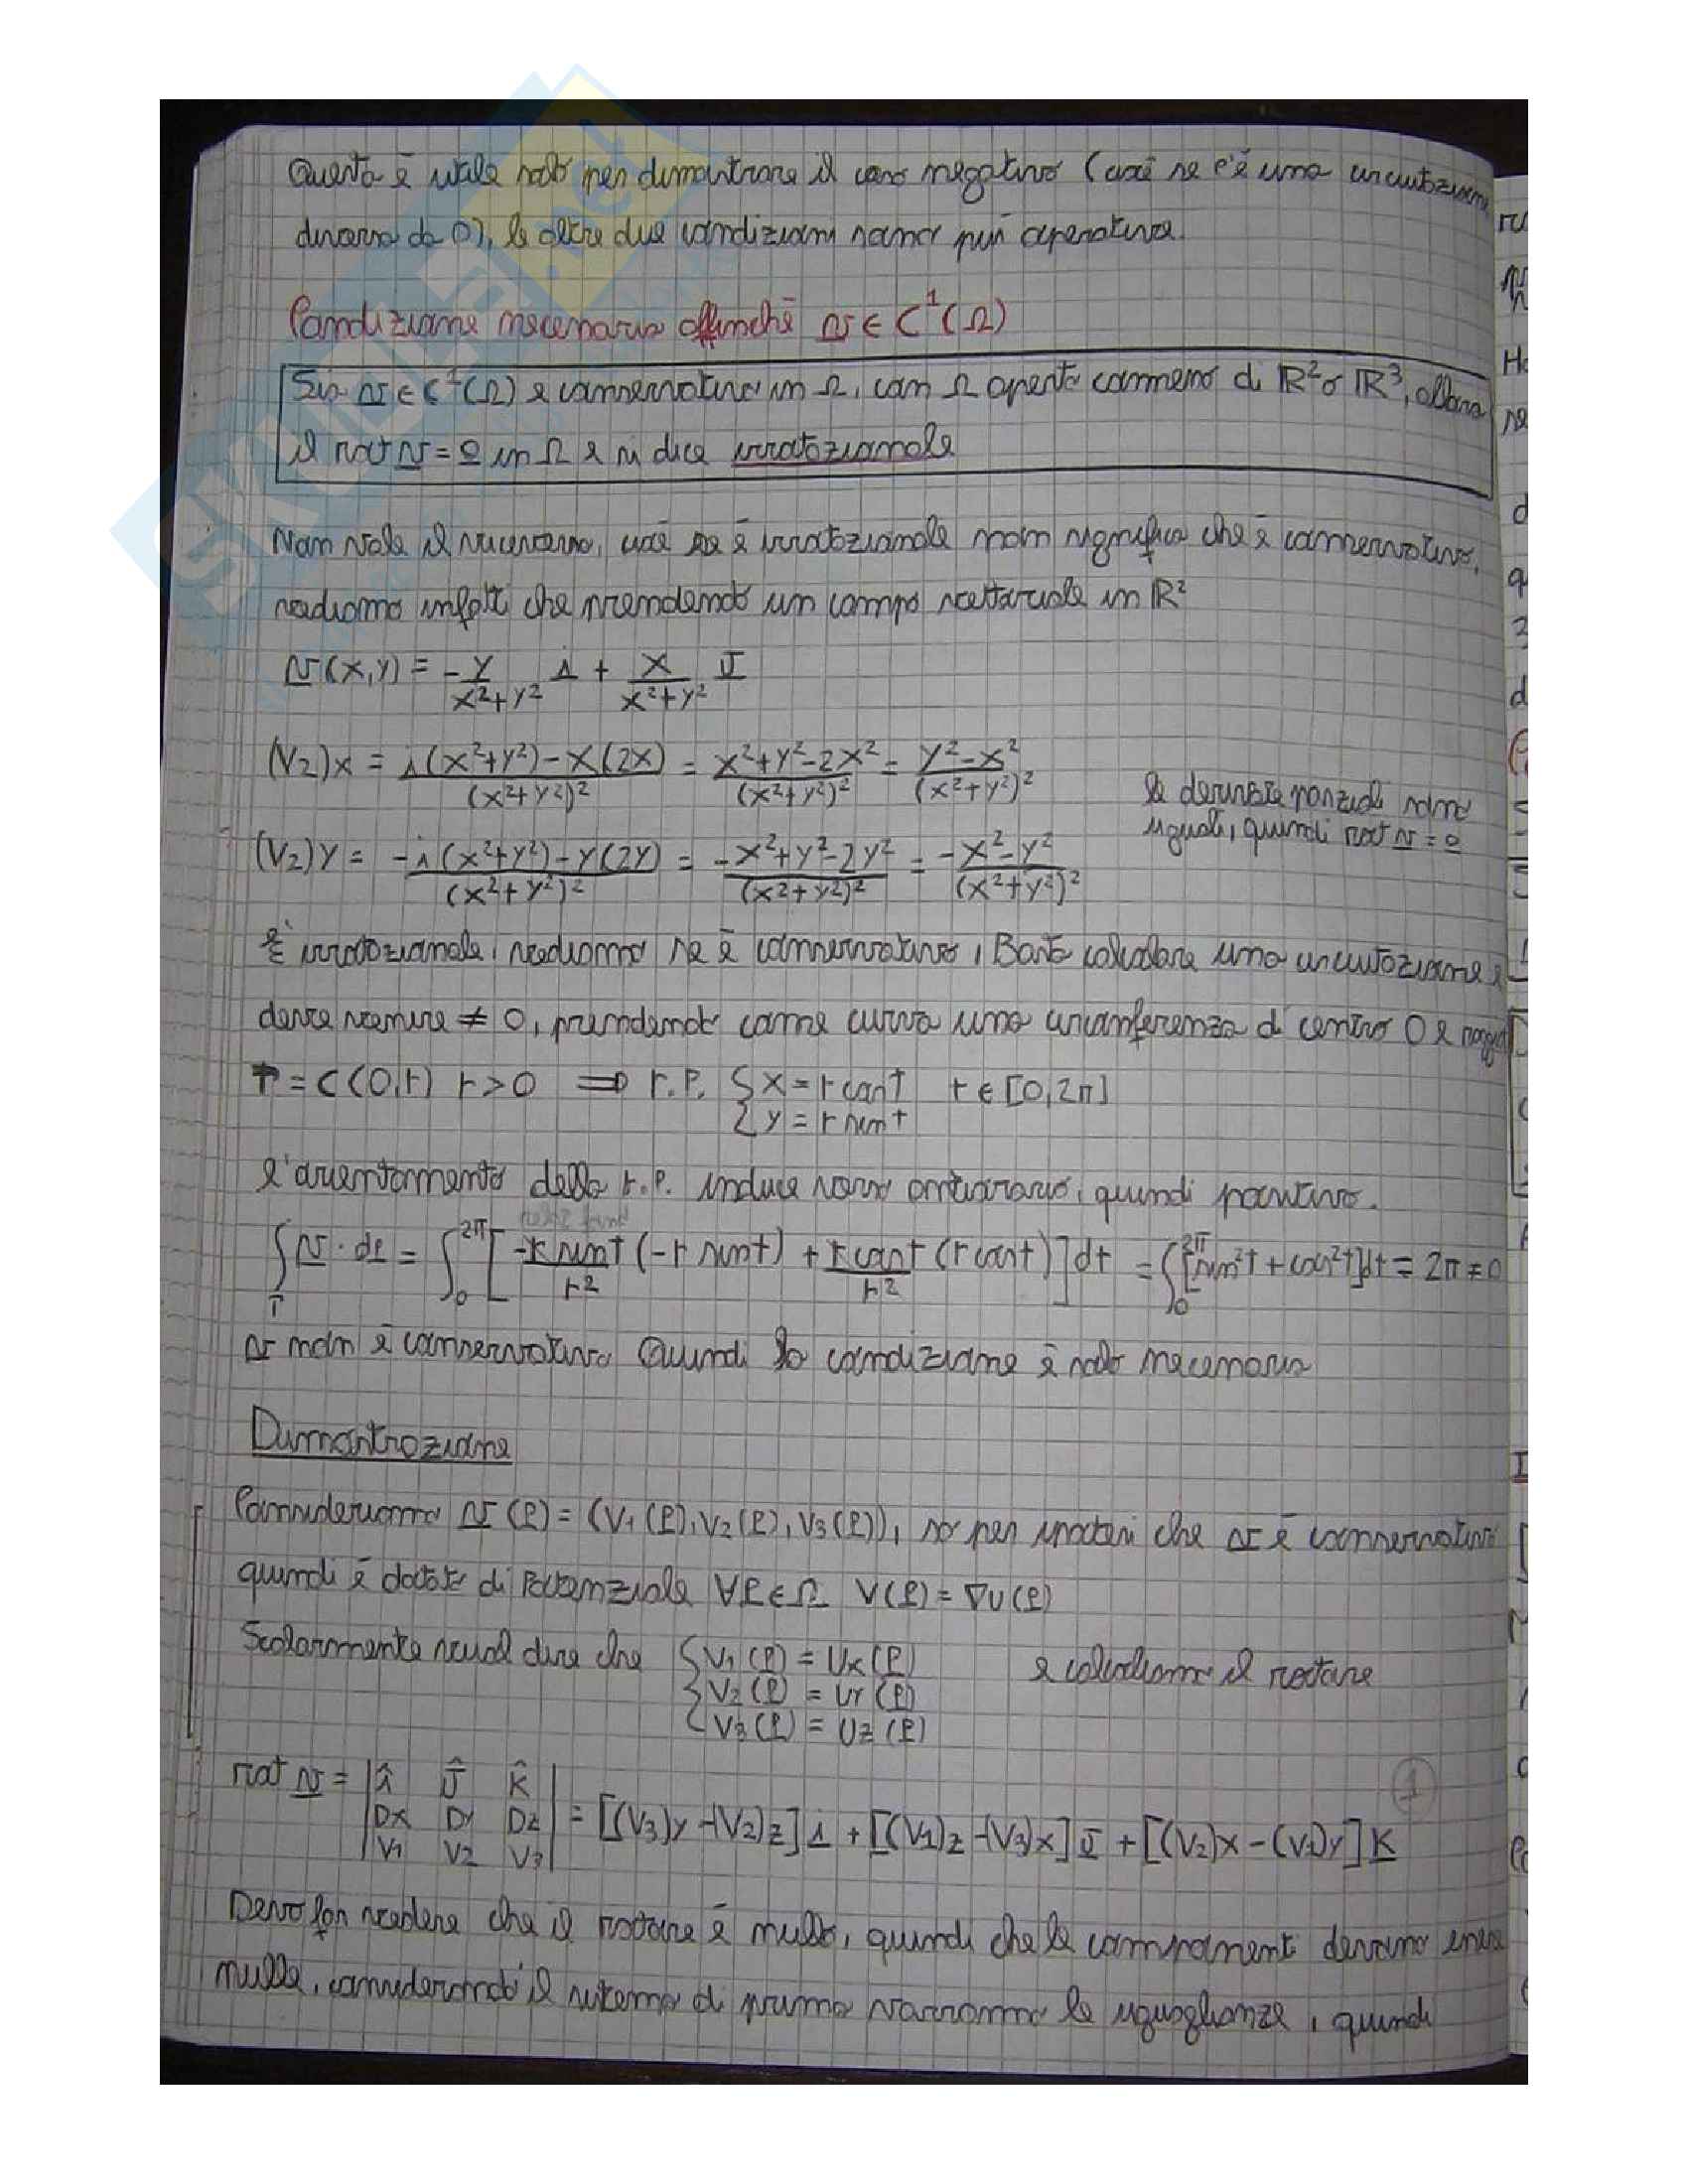 Questo è utile solo per dimostrare il caso negativo (cioè se c'è una circuitazione
diversa da 0), le altre due condizioni sono più operative.
Condizione necessaria affinché v ∈ C¹(Ω)
Sia v ∈ C¹(Ω) e conservativo in Ω, con Ω aperto connesso di ℝ² o ℝ³, allora
il rot v = 0 in Ω e si dice irrotazionale
Non vale il viceversa, cioè se è irrotazionale non significa che è conservativo,
vediamo infatti che prendendo un campo vettoriale in ℝ²
v(x,y) = -y/(x²+y²) i + x/(x²+y²) J
(V2)x = 1(x²+y²)-x(2x)/(x²+y²)² = x²+y²-2x²/(x²+y²)² = y²-x²/(x²+y²)²
le derivate parziali sono
uguali, quindi rot v = 0
(V2)y = -1(x²+y²)-y(2y)/(x²+y²)² = -x²+y²-2y²/(x²+y²)² = -x²-y²/(x²+y²)²
È irrotazionale, vediamo se è conservativo, Basta calcolare una circuitazione e
deve venire ≠ 0, prendendo come curva una circonferenza di centro O e raggio
Γ = C(O,r) r>0 ⇒ r.p. { x = r cos t t ∈ [0,2π]
{ y = r sin t
l'orientamento della r.p. induce verso antiorario, quindi positivo.
∫Γ v · dP = ∫₀^2π [ -r sin t/r² (-r sin t) + r cos t/r² (r cos t) ] dt = ∫₀^2π [sin²t + cos²t] dt = 2π ≠ 0
v non è conservativo. Quindi la condizione è solo necessaria
Dimostrazione
Consideriamo v(P) = (V1(P), V2(P), V3(P)), so per ipotesi che v è conservativo
quindi è dotato di Potenziale ∀P ∈ Ω V(P) = ∇U(P)
Scalarmente vuol dire che { V1(P) = Ux(P) e calcoliamo il rotore
{ V2(P) = Uy(P)
{ V3(P) = Uz(P)
1
rot v = | î Ĵ K̂ |
| Dx Dy Dz | = [(V3)y - (V2)z] i + [(V1)z - (V3)x] J + [(V2)x - (V1)y] K
| V1 V2 V3 |
Devo far vedere che il rotore è nullo, quindi che le componenti devono essere
nulle, considerando il sistema di prima varranno le uguaglianze, quindi